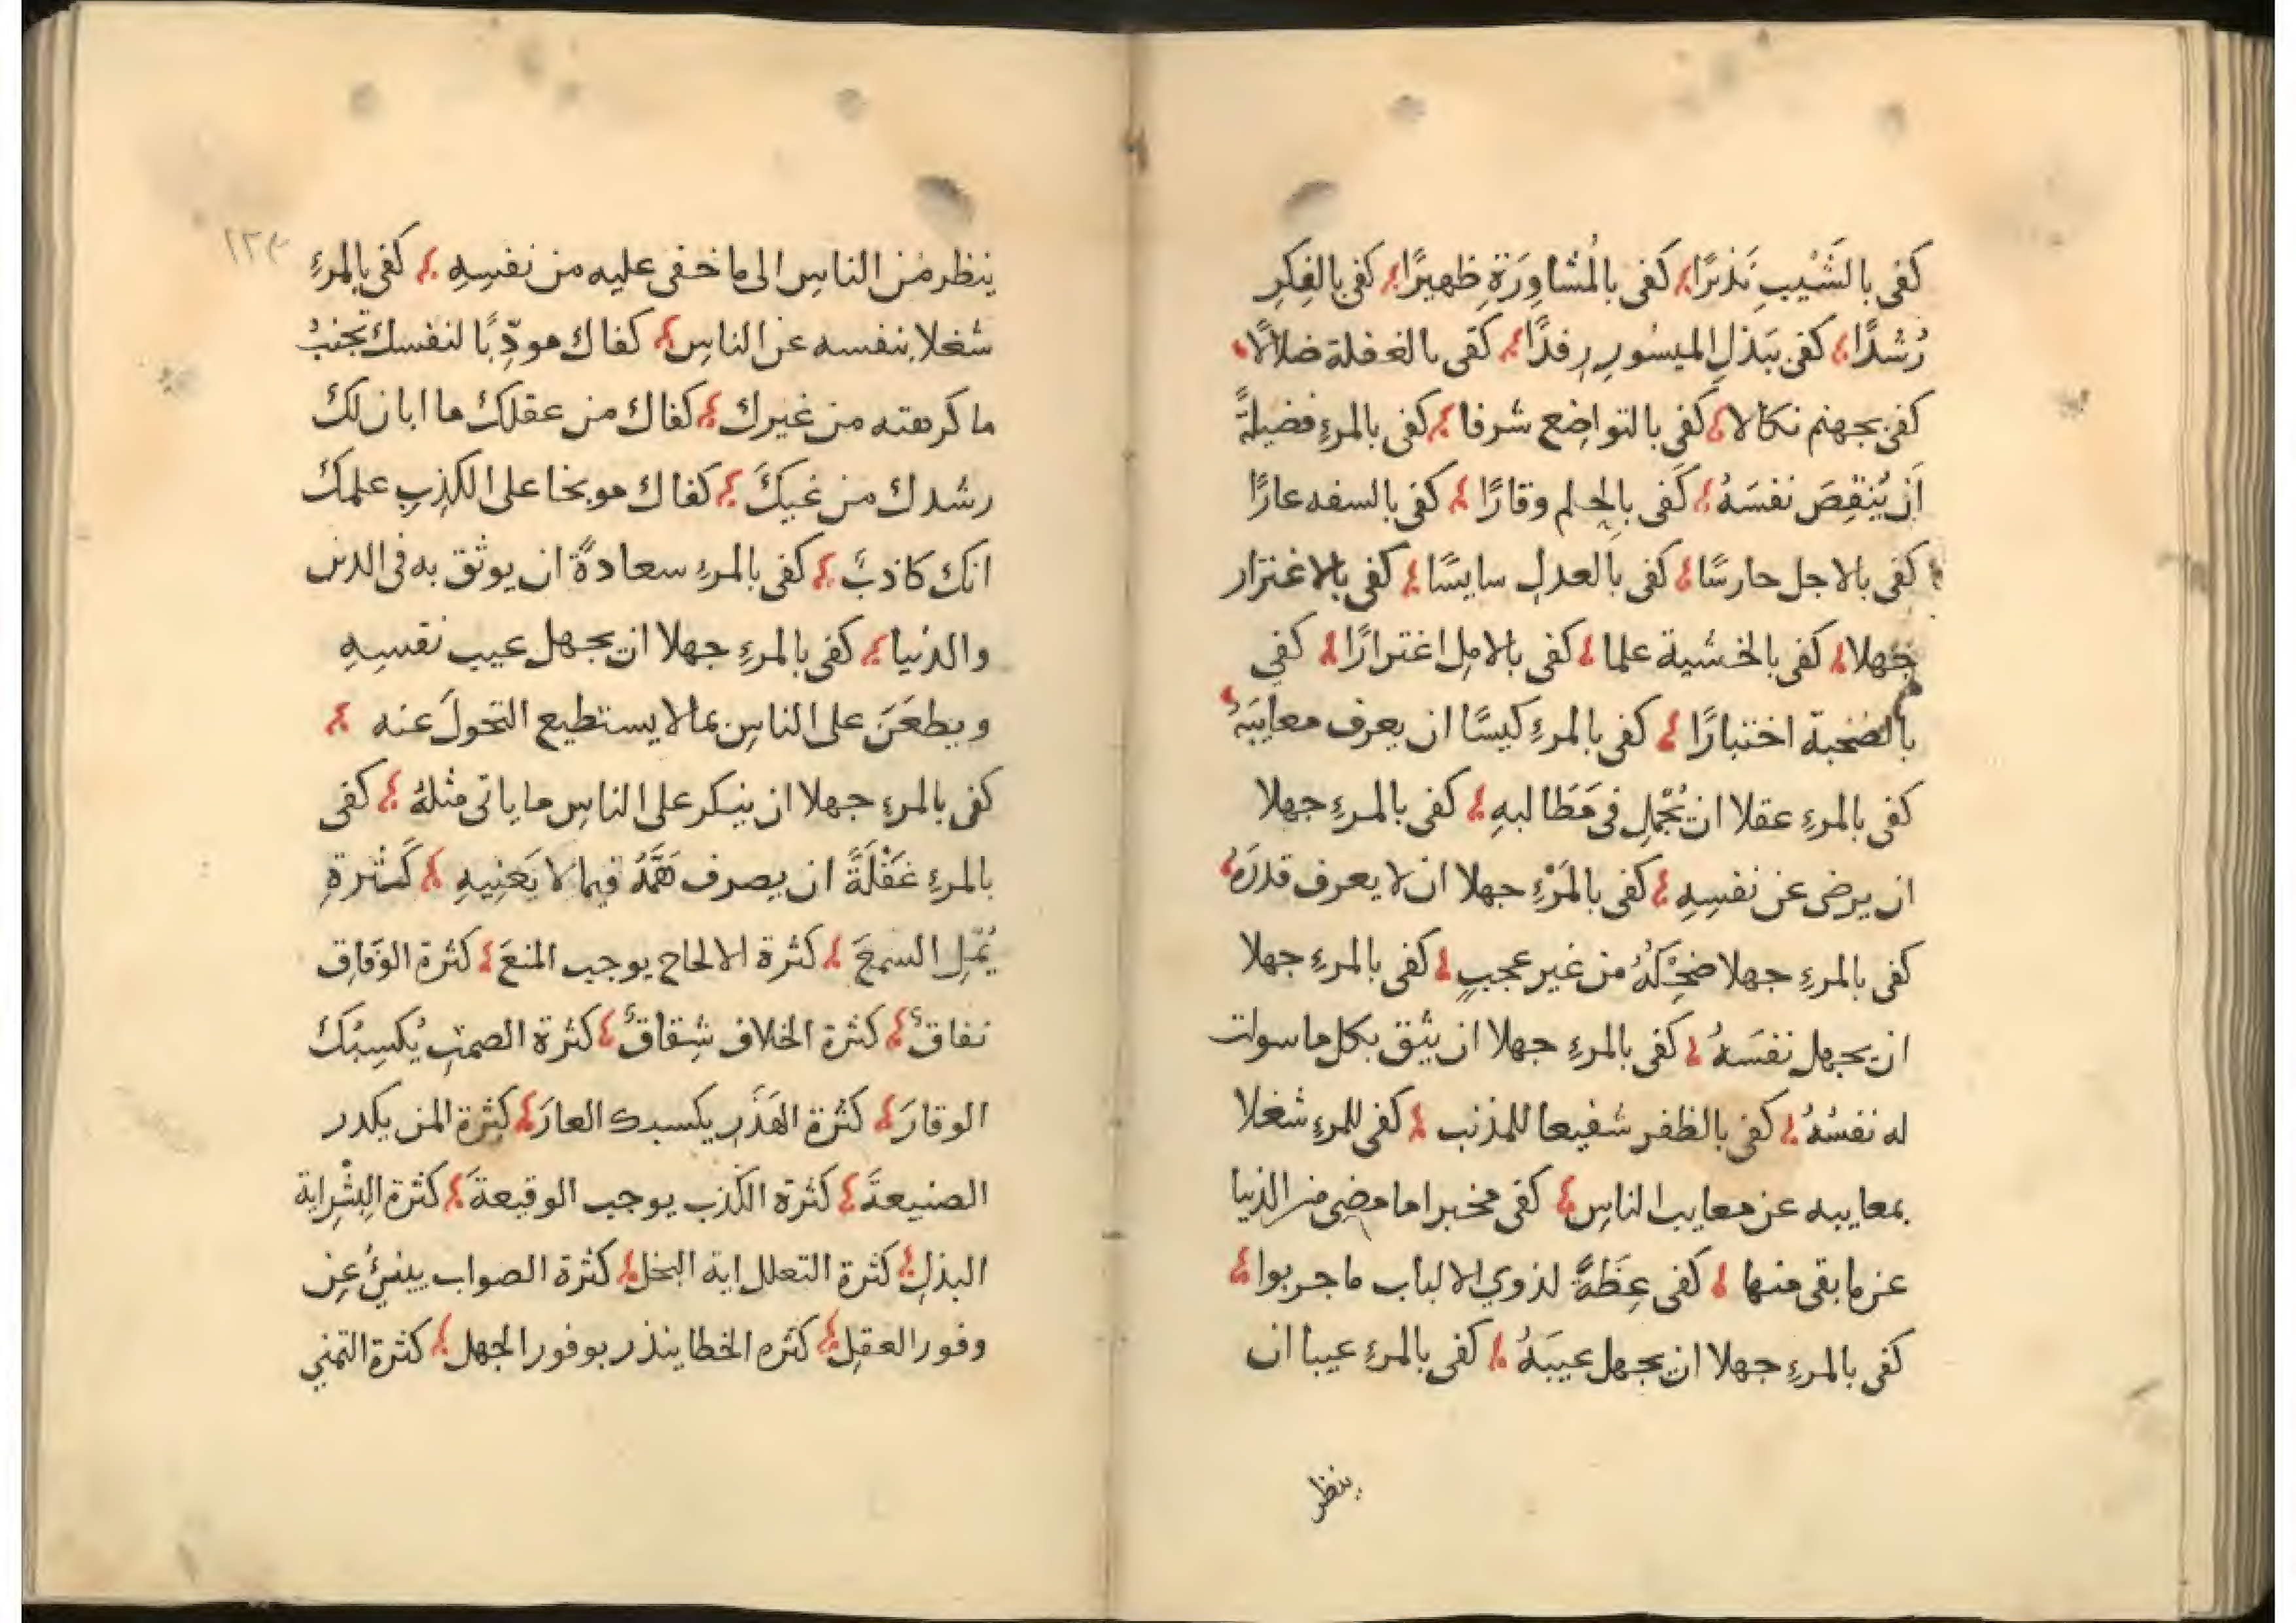 كفى بالشَّيْبِ نَذيرًا كفى بالمُشاوِرَةِ ظهيرًا كفى بالفِكِرِ
رُشدًا كفى بَبَذلِ الميسُورِ رِفدًا كفى بالغفلة ضلالًا
كفى بجهنم نكالا كَفى بالتواضِع شرفا كفى بالمرءِ فضيلةً
اَن يُنقِصَ نفسَهُ كَفى بالحِلم وقارًا كفى بالسفه عارًا
كفى بالاجل حارسًا كفى بالعدلِ سايسًا كفى بالاغترار
جهلا كفى بالخشية علما كفى بالامِل اغترارًا كفى
بالصُحبة اختبارًا كفى بالمرءِ كيسًا ان يعرف معايبَهُ
كفى بالمرءِ عقلا ان يُجْمِل فى مَطَالبهِ كفى بالمرءِ جهلا
ان يرضى عن نفسِهِ كفى بالمَرْءِ جهلا ان لا يعرف قدرَهُ
كفى بالمرءِ جهلا ضحِْكَهُ من غير عجبٍ كفى بالمرءِ جهلا
ان يجهل نفسَهُ كفى بالمرءِ جهلا ان يثق بكل ما سولت
له نفسُهُ كفى بالظفر شفيعا للمذنب كفى للمرءِ شغلا
بمعايبه عن معايب الناسِ كفى مخبرا ما مضى من الدنيا
عن ما بقى منها كفى عِظَةً لذوي الالباب ما جربوا
كفى بالمرءِ جهلا ان يجهل عيبَهُ كفى بالمرءِ عيبا ان
ينظر
١٢٣
ينظر مْن الناسِ الى ما خفى عليه من نفسِهِ كفى بالمرءِ
شغلا بنفسه عن الناسِ كفاك مودِّبًا لنفسك تجنبُ
ما كرهته من غيرك كفاك من عقلك ما ابان لك
رشدك من غيكَ كفاك موبخا على الكذِبِ علمك
انك كاذبٌ كفى بالمرءِ سعادةً ان يوثق به فى الدين
والدُنيا كفى بالمرءِ جهلا ان يجهل عيب نفسِهِ
ويطعَنَ على الناسِ بما لا يستطيع التحولَ عنه
كفى بالمرءِ جهلا ان ينكر على الناسِ ما ياتى مثلهُ كفى
بالمرءِ غَفْلَةً ان يصرف هَمَّهُ فيما لا يَعْنِيهِ كَثْرة
يُمّلِ السمعَ كثرة الالحاح يوجب المنعَ كثرة الوَفاقِ
نفاقٌ كثرة الخلاف شِقاقٌ كثرة الصمتِ يُكسِبُكَ
الوقارَ كثرة الهَذَرِ يكسبك العارَ كثرة المن يكدر
الصنيعةَ كثرة الكَذب يوجب الوقيعةَ كثرة البِشْرِ اية
البذلِ كثرة التعلل اية البخل كثرة الصواب ينبئُ عن
وفور العقلِ كثره الخطا ينذر بوفور الجهل كثرة التمنى